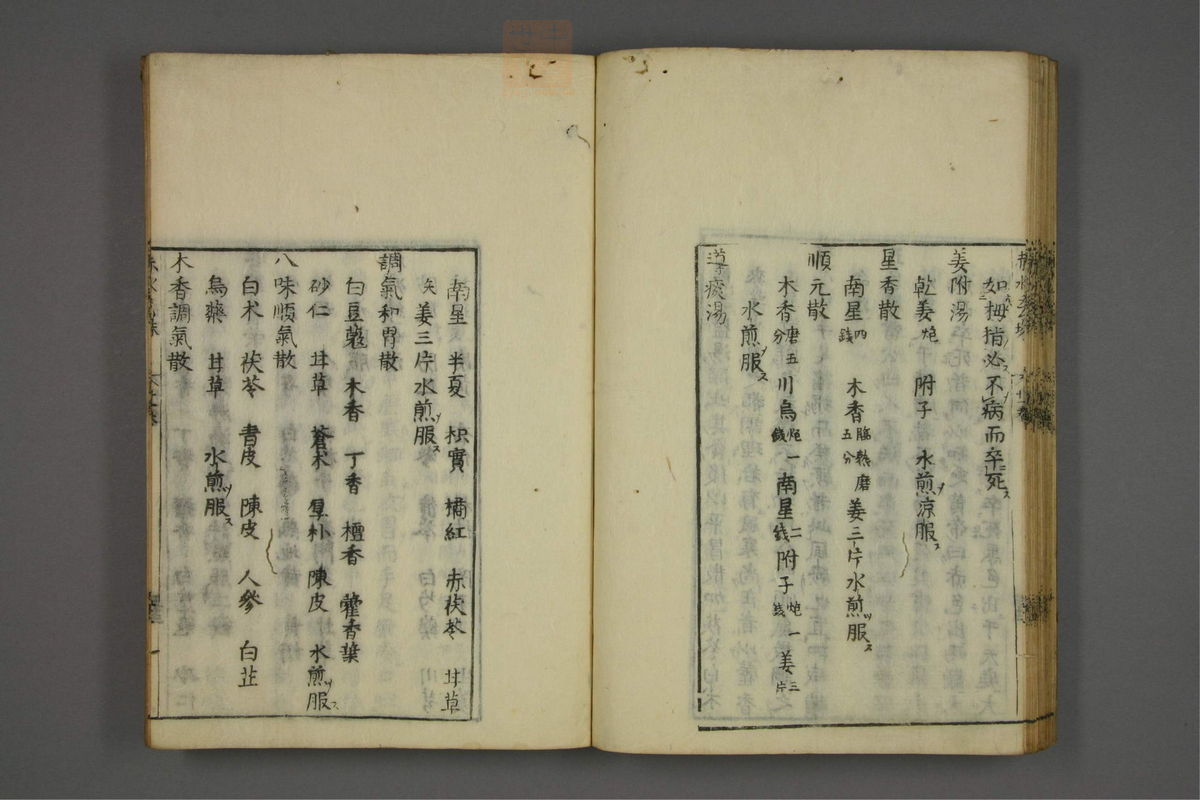 如拇指必不病而卒死ス
姜附湯
乾姜炮 附子 水煎涼服ス
星香散
南星四錢 木香臨熟磨五分 姜三片水煎服ス
順元散
木香磨五分 川烏炮一錢 南星二錢 附子炮一錢 姜三片
水煎服ス
導痰湯
南星 半夏 枳實 橘紅 赤茯苓 甘草
矢 姜三片水煎服ス
調氣和胃散
白豆蔻 木香 丁香 檀香 藿香葉
砂仁 甘草 蒼朮 厚朴 陳皮 水煎服ス
八味順氣散
白朮 茯苓 青皮 陳皮 人參 白芷
烏藥 甘草 水煎服ス
木香調氣散